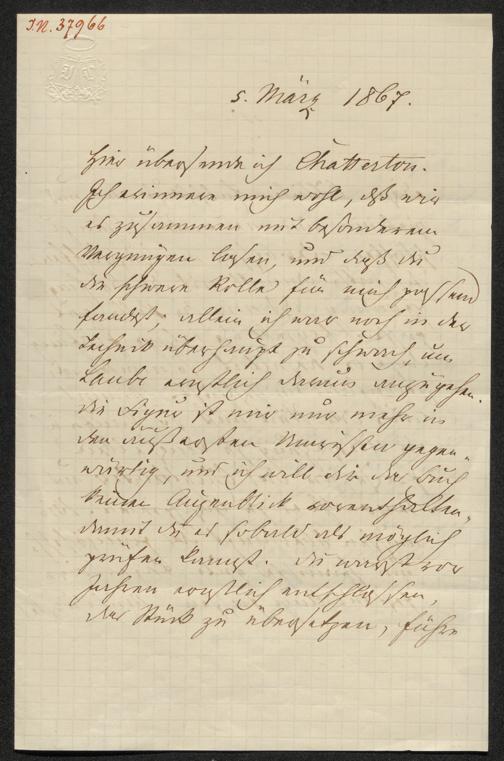 I.N. 37966
5. März 1867.
Hier übersende ich Chatterton.
Ich erinnere mich wohl, daß wir
es zusammen mit besonderem
Vergnügen lasen, und daß du
die schwere Rolle für mich passend
fandest; allein ich war noch in der
Technik überhaupt zu schwach, um
Laube ernstlich darum anzugehen.
Die Figur ist mir nur mehr in
den äußersten Umrissen gegen-
wärtig, und ich will dir das Buch
keinen Augenblick vorenthalten,
damit du es sobald als möglich
prüfen kannst. Du warst vor
Jahren ernstlich entschlossen,
das Stück zu übersetzen, führe